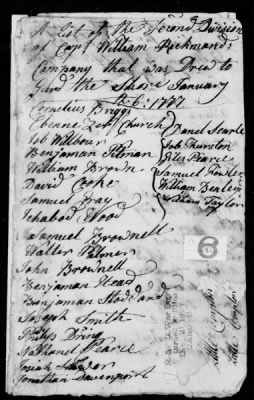 A List of the Second Division
of Capt William Richmands
Company that was Drew to
Gard the Shore January
the 6: 1777
Cornelius Briggs
Ebenezer Church
Job Wilbour
Benjaman Pitman
William Brown
David Cooke
Samuel Gray
Ichabod Wood
Samuel Brownell
Walter Palmer
John Brownell
Benjaman Head
Benjaman Stoddard
Joseph Smith
Philip Dring
Nathanel Pearce
Josiah Sawder
Jonathan Davenport
Danel Searle
Job Thurston
Giles Pearce
Samuel Fowler
William Bealey
William Taylor
Little Compton
Little Compton